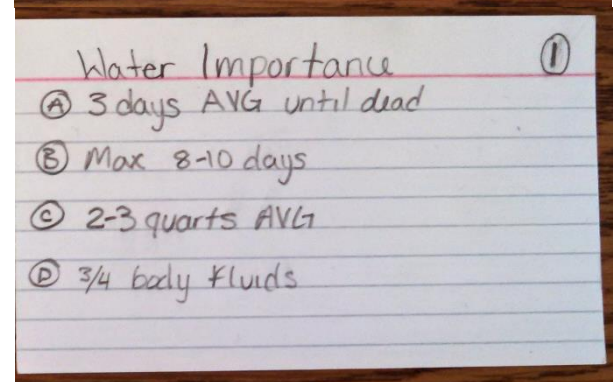 Water Importance ①
Ⓐ 3 days AVG until dead
Ⓑ Max 8-10 days
Ⓒ 2-3 quarts AVG
Ⓓ 3/4 body fluids